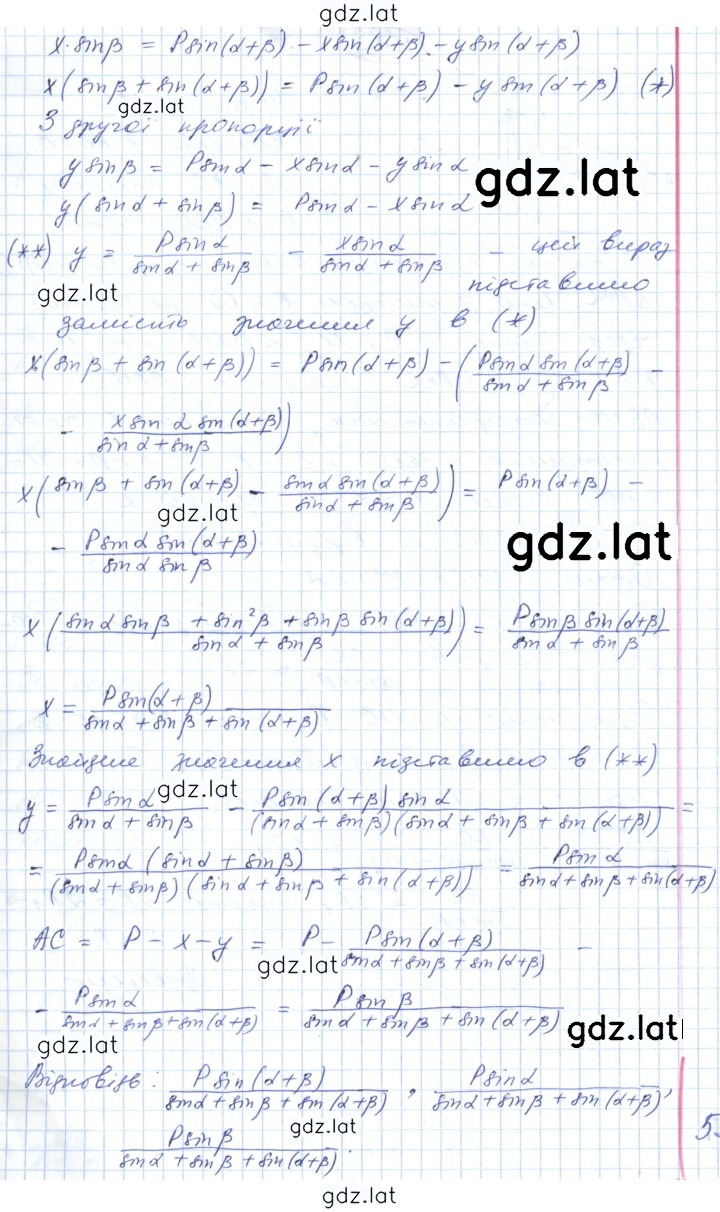 gdz.lat
x·sinβ = Psin(α+β) - xsin(α+β) - ysin(α+β)
x(sinβ + sin(α+β)) = Psin(α+β) - ysin(α+β) (*)
gdz.lat
З другої пропорції
ysinβ = Psinα - xsinα - ysinα
gdz.lat
y(sinα + sinβ) = Psinα - xsinα
(**) y = Psinα/(sinα + sinβ) - xsinα/(sinα + sinβ) - цей вираз
gdz.lat
підставимо
замість значення y в (*)
x(sinβ + sin(α+β)) = Psin(α+β) - (Psinα sin(α+β)/(sinα + sinβ) -
- xsinα sin(α+β)/(sinα + sinβ))
x(sinβ + sin(α+β) - sinα sin(α+β)/(sinα + sinβ)) = Psin(α+β) -
gdz.lat
- Psinα sin(α+β)/(sinα sinβ)
gdz.lat
x((sinα sinβ + sin²β + sinβ sin(α+β))/(sinα + sinβ)) = Psinβ sin(α+β)/(sinα + sinβ)
x = Psin(α+β)/(sinα + sinβ + sin(α+β))
Знайдене значення x підставимо в (**)
gdz.lat
y = Psinα/(sinα + sinβ) - Psin(α+β) sinα/((sinα + sinβ)(sinα + sinβ + sin(α+β))) =
= Psinα(sinα + sinβ)/((sinα + sinβ)(sinα + sinβ + sin(α+β))) = Psinα/(sinα + sinβ + sin(α+β))
AC = P - x - y = P - Psin(α+β)/(sinα + sinβ + sin(α+β)) -
gdz.lat
- Psinα/(sinα + sinβ + sin(α+β)) = Psinβ/(sinα + sinβ + sin(α+β))
gdz.lat
gdz.lat
Відповідь: Psin(α+β)/(sinα + sinβ + sin(α+β)), Psinα/(sinα + sinβ + sin(α+β)),
gdz.lat
Psinβ/(sinα + sinβ + sin(α+β)).
5
gdz.lat